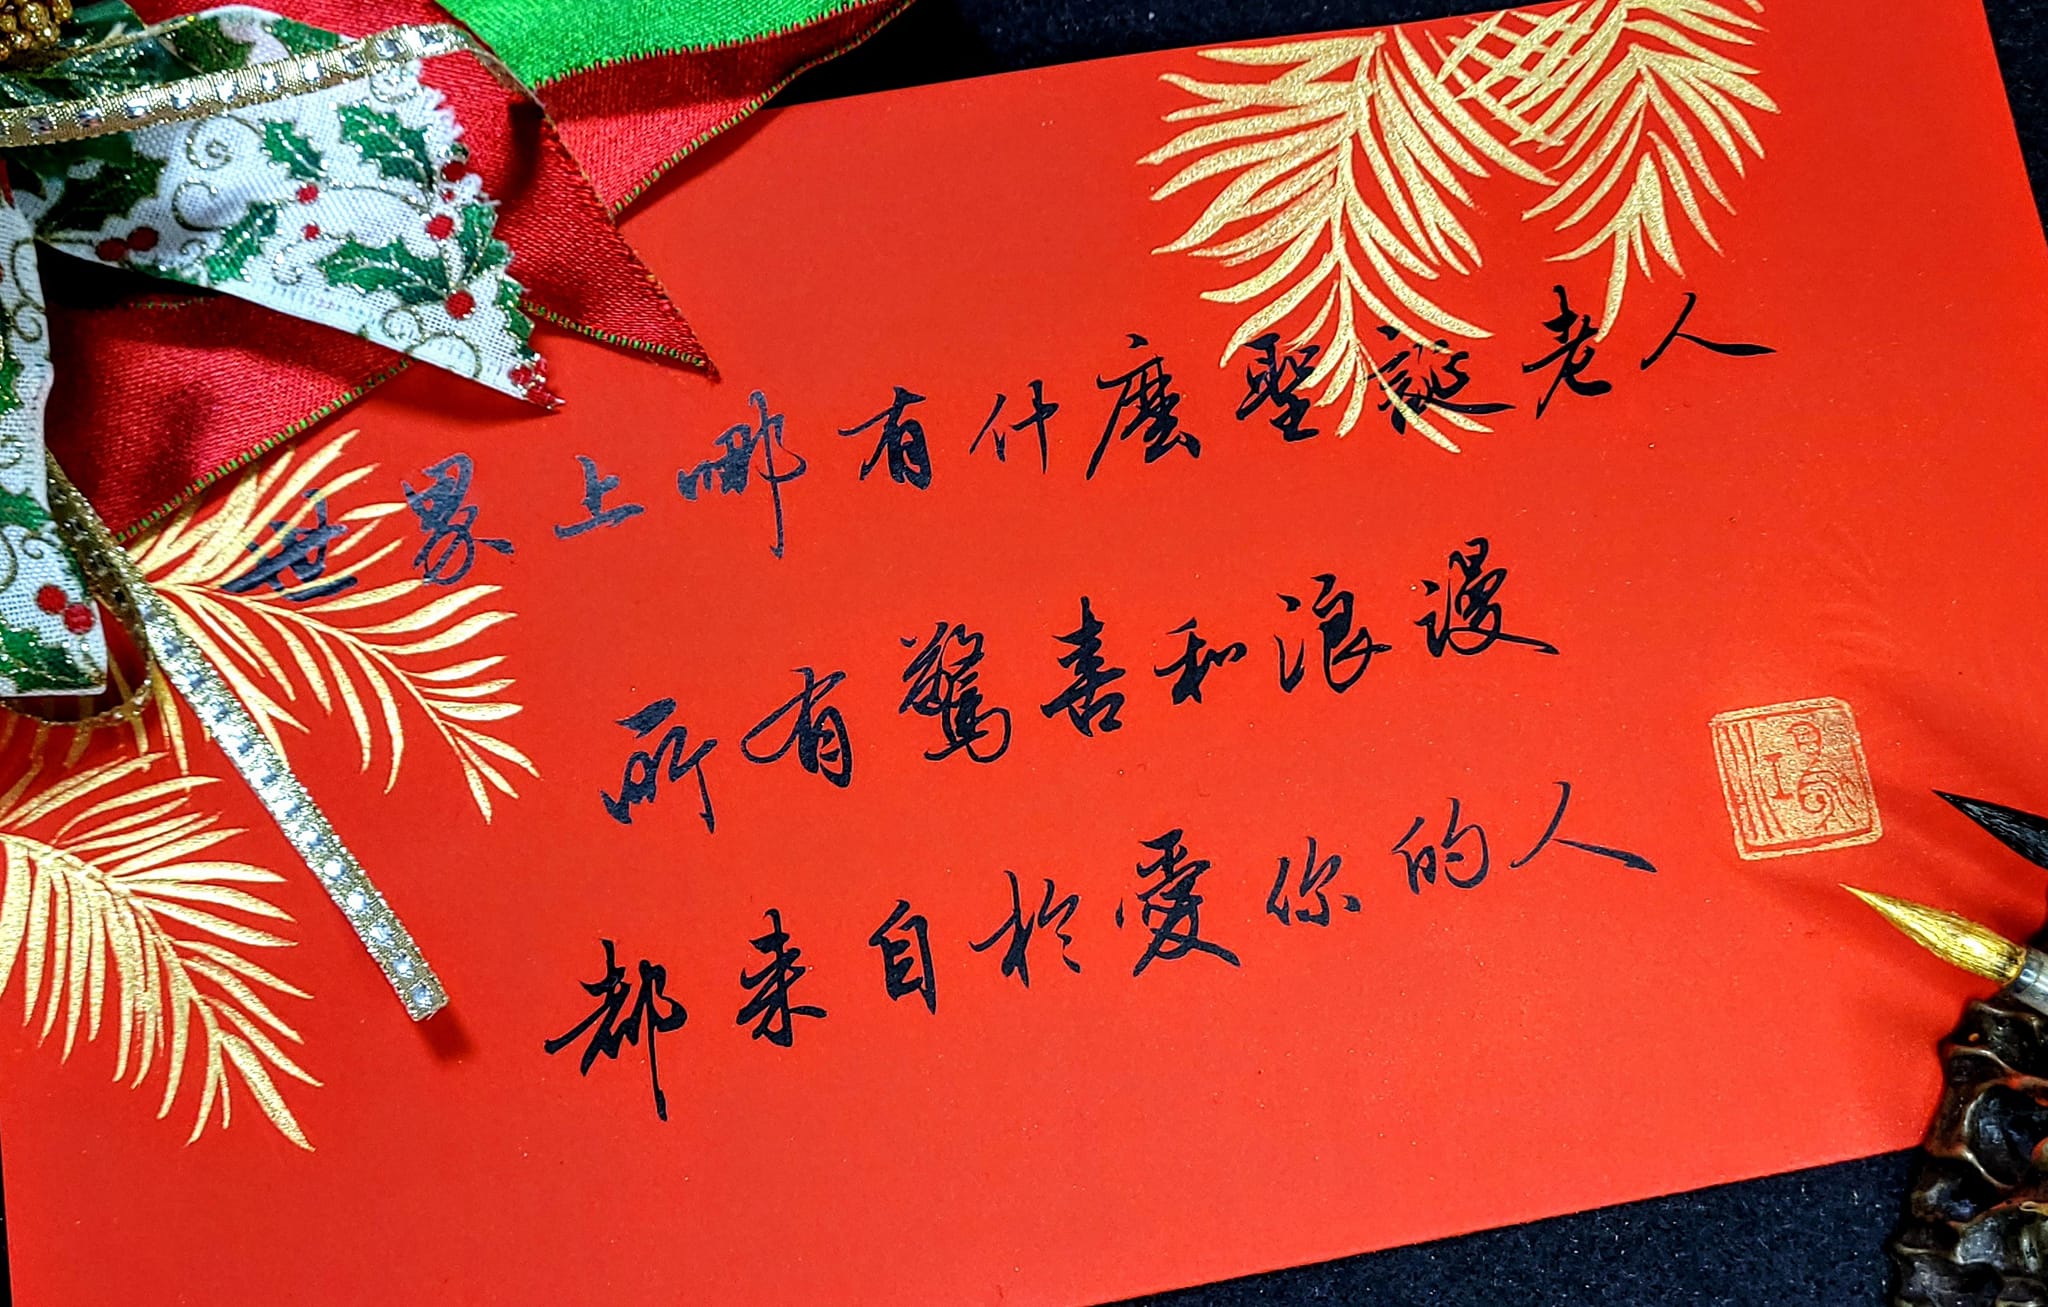 世界上哪有什麼聖誕老人
所有驚喜和浪漫
都來自於愛你的人